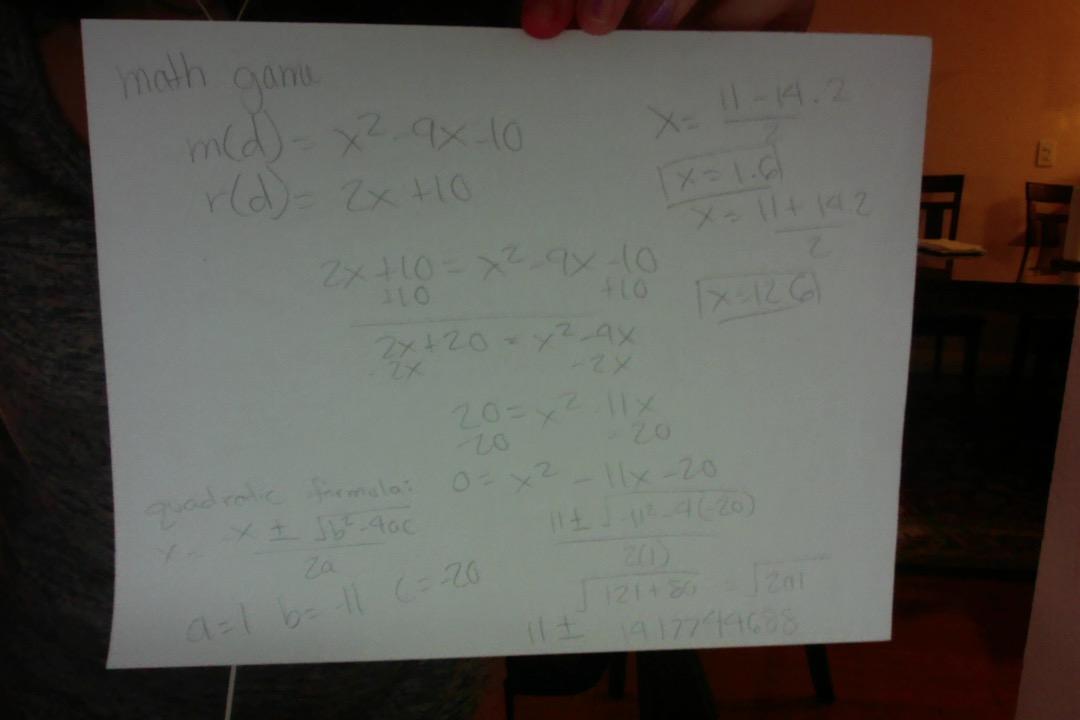 math game
m(d) = x² - 9x - 10
r(d) = 2x + 10
2x + 10 = x² - 9x - 10
+10 +10
2x + 20 = x² - 9x
-2x -2x
20 = x² 11x
-20 - 20
0 = x² - 11x - 20
quadratic formula:
x = -x ± √b² - 4ac
2a
a = 1 b = -11 c = -20
11 ± √-11² - 4(-20)
2(1)
√121 + 80 = √201
11 ±
x = 11 - 14.2
2
x = 1.6
x = 11 + 14.2
2
x = 12.6